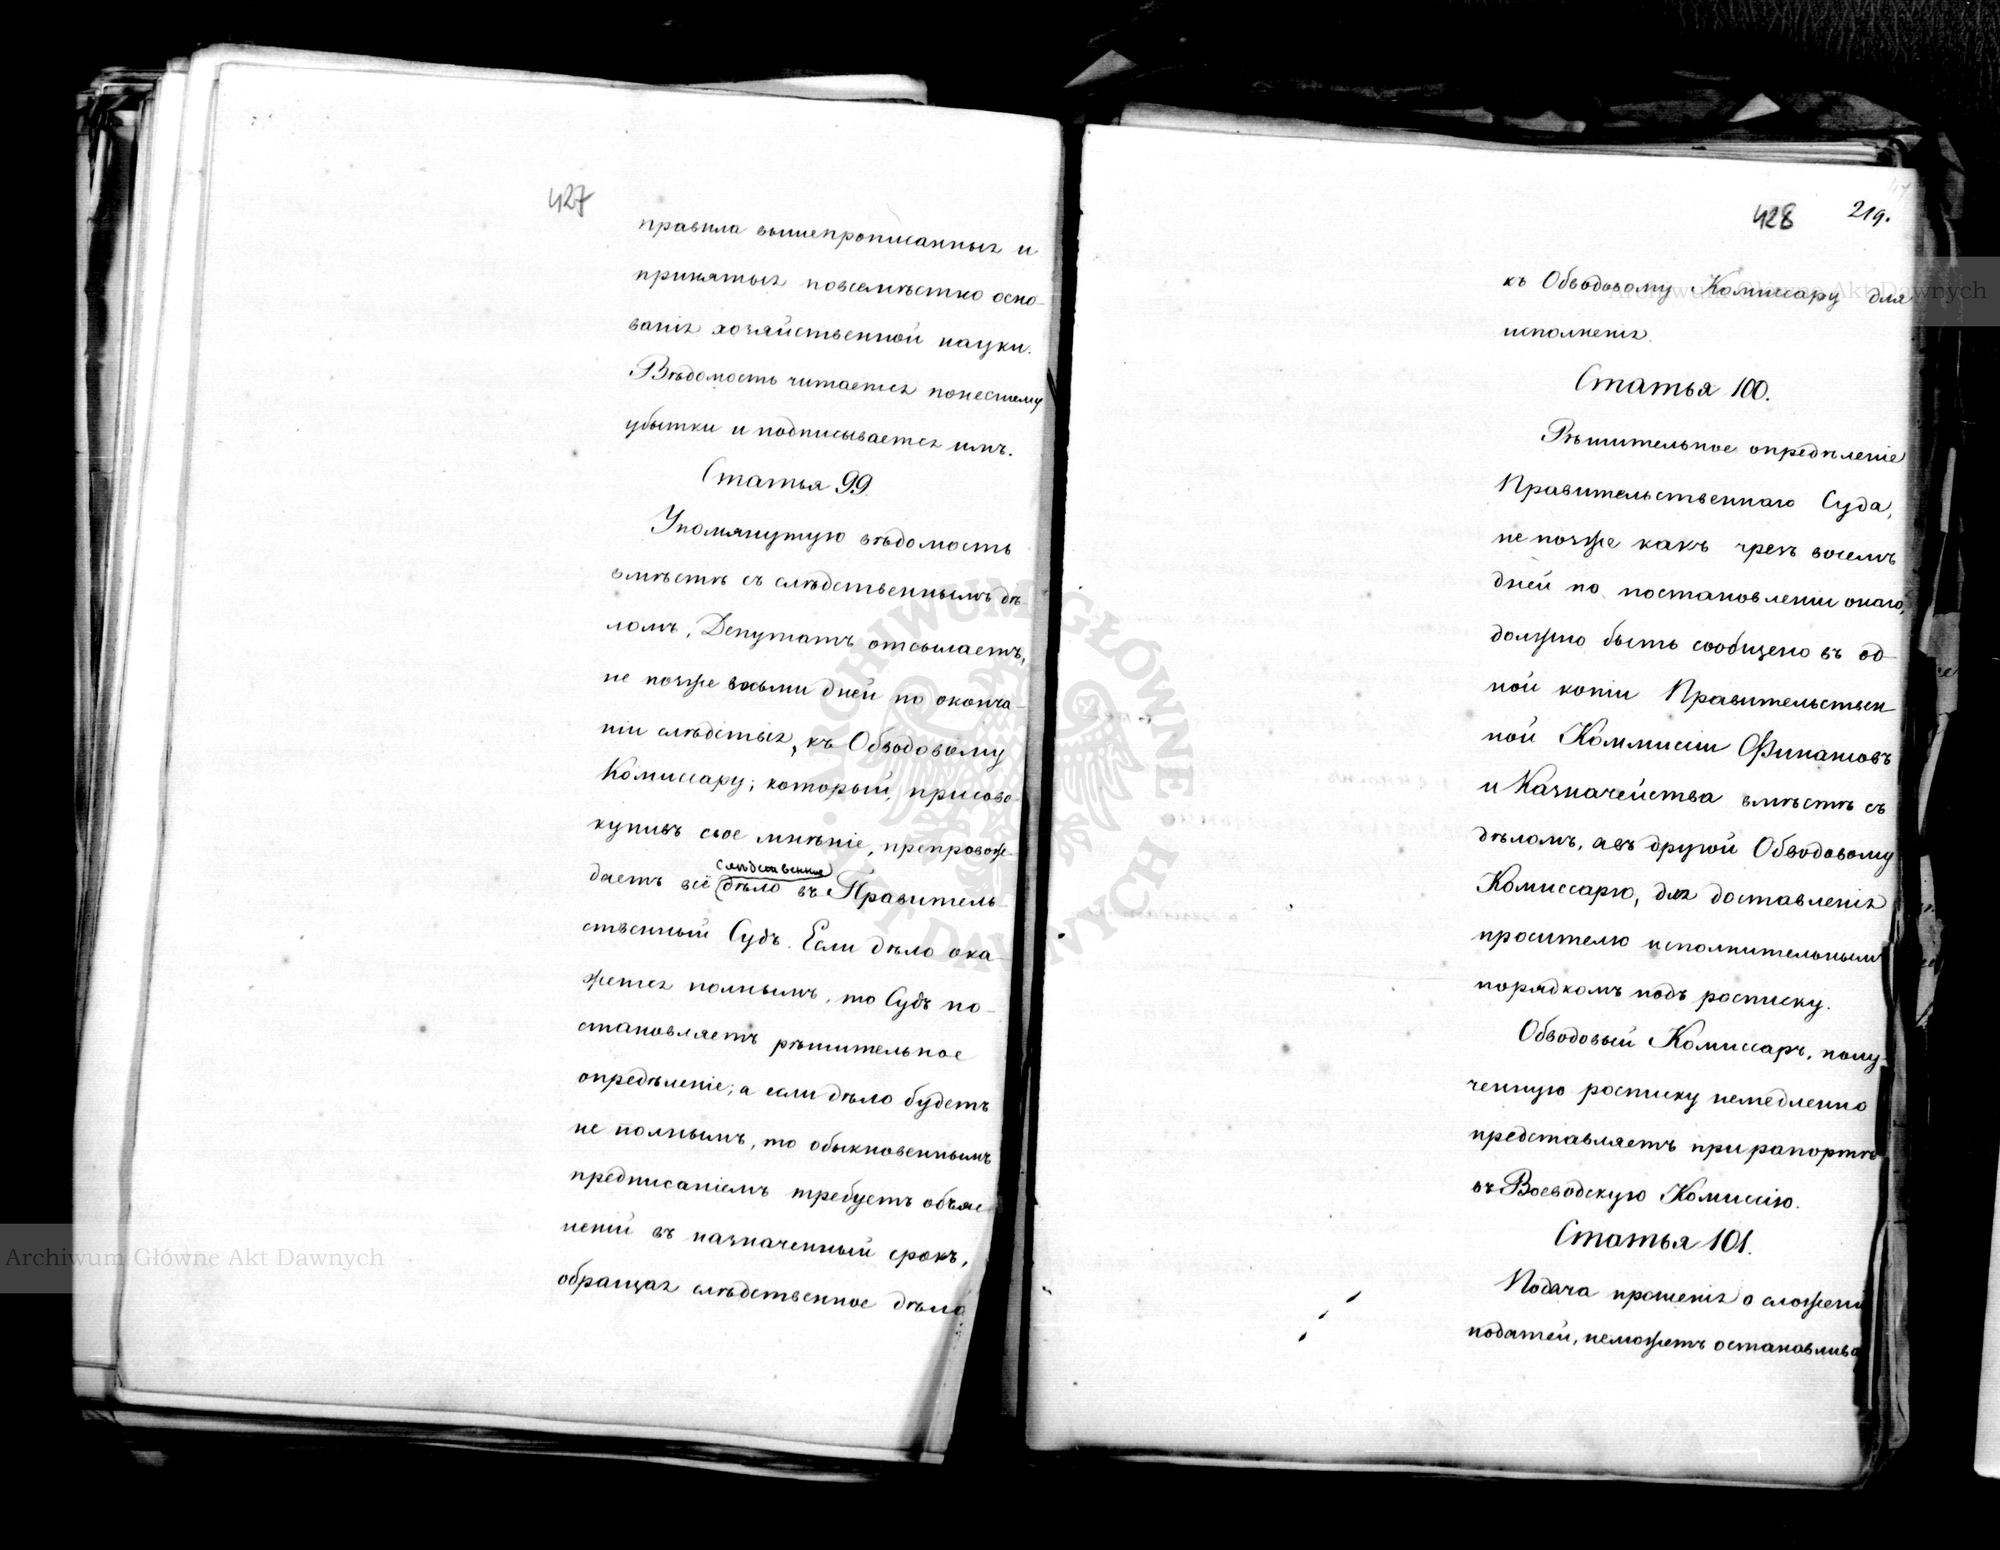 427
правила вышепрописанныя и
принятыя повсемѣстно осно-
ванія хозяйственной науки.
Вѣдомость читается понесшему
убытки и подписывается имъ.
Статья 99.
Упомянутую вѣдомость
вмѣстѣ съ слѣдственнымъ дѣ-
ломъ, Депутатъ отсылаетъ,
не позже восьми дней по оконча-
ніи слѣдствія, къ Обводовому
Комиссару; который, присово-
купивъ свое мнѣніе, препровож-
слѣдственное
даетъ всё дѣло въ Правитель-
ственный Судъ. Если дѣло ока-
жется полнымъ, то Судъ по-
становляетъ рѣшительное
опредѣленіе; а если дѣло будетъ
не полнымъ, то обыкновеннымъ
предписаніемъ требуетъ объяс
неній въ назначенный срокъ,
обращая слѣдственное дѣло
428 219.
къ Обводовому Комиссару для
исполненія.
Статья 100.
Рѣшительное опредѣленіе
Правительственнаго Суда,
не позже какъ чрезъ восемь
дней по постановленіи онаго,
должно быть сообщено въ од-
ной копіи Правительствен
ной Коммисіи Финансовъ
и Казначейства вмѣстѣ съ
дѣломъ, а въ другой Обводовому
Комиссару, для доставленія
просителю исполнительнымъ
порядкомъ подъ росписку.
Обводовый Комиссаръ, полу-
ченную росписку немедленно
представляетъ при рапортѣ
въ Воеводскую Комиссію.
Статья 101.
Подача прошенія о сложеніи
податей, неможетъ остановлива
Archiwum Główne Akt Dawnych
Archiwum Główne Akt Dawnych
ARCHIWUM GŁÓWNE AKT DAWNYCH